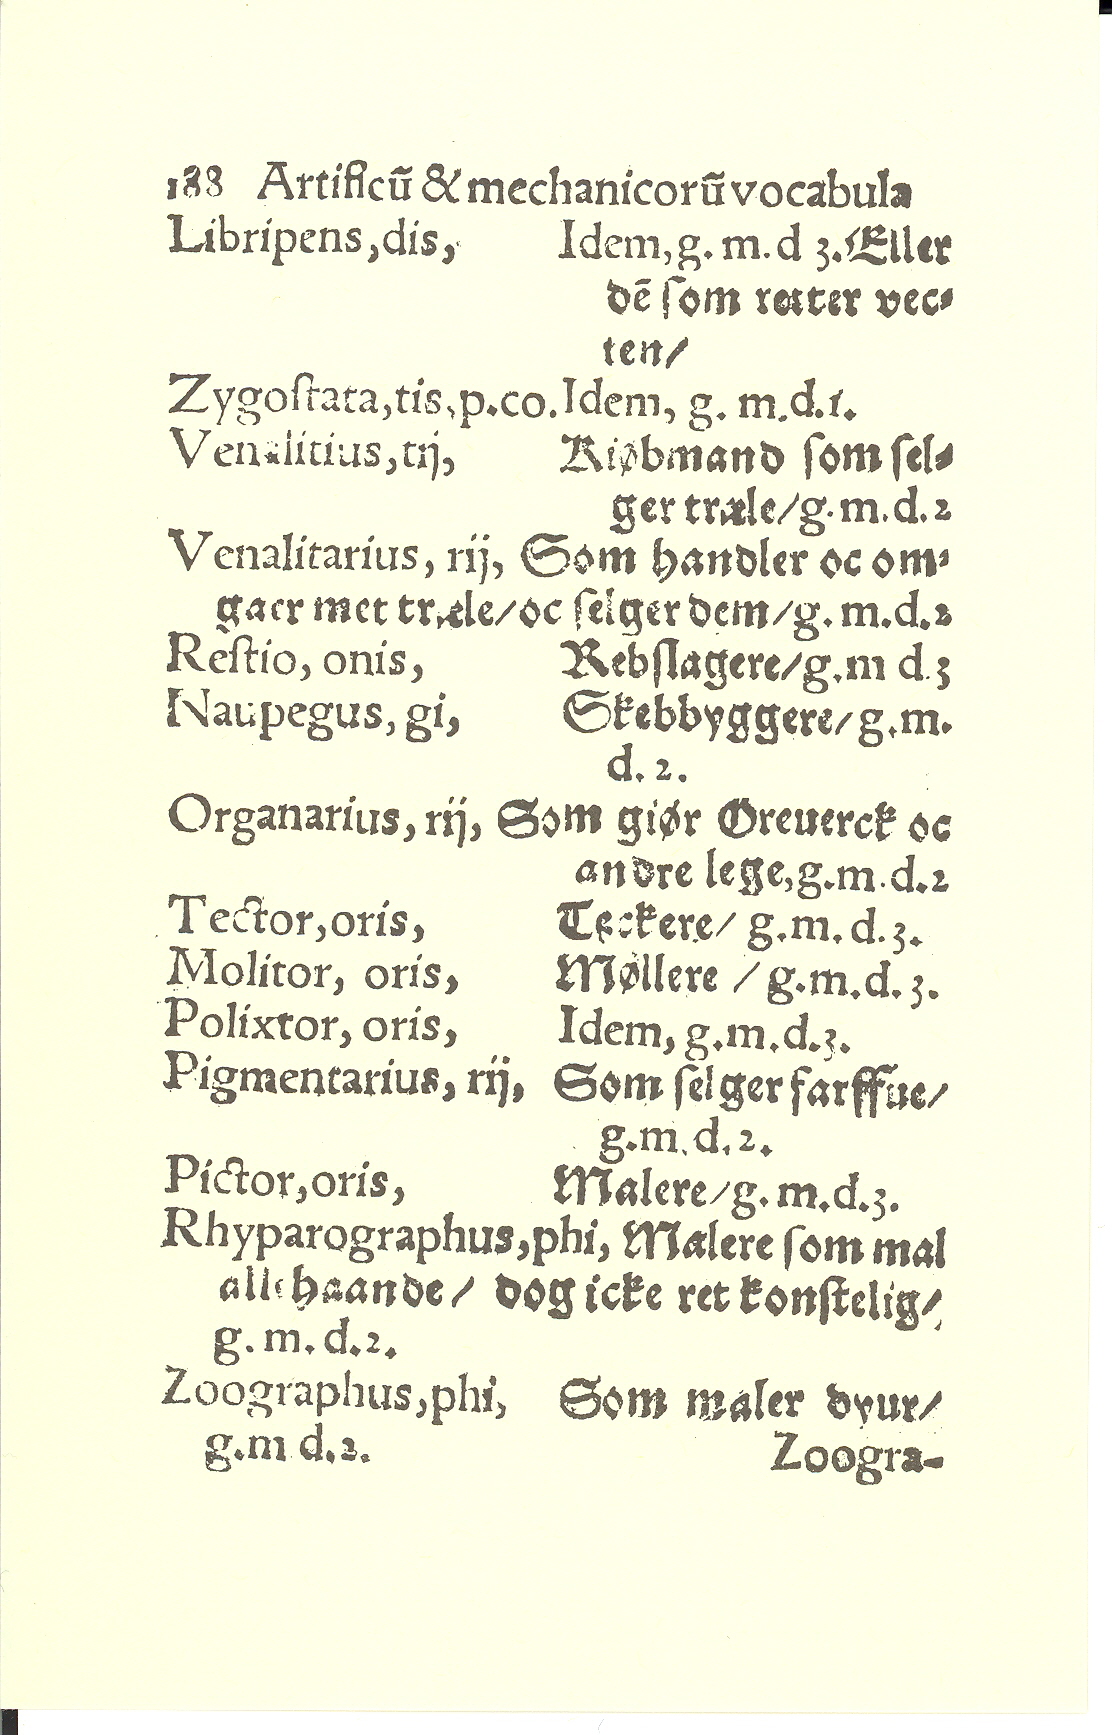 188 Artificū & mechanicorū vocabula
Libripens, dis, Idem, g. m. d 3. Eller
dē som rætter vec⸗
ten/
Zygostata, tis, p. co. Idem, g. m. d. 1.
Venalitius, tij, Kiøbmand som sel⸗
ger træle/ g. m. d. 2
Venalitarius, rij, Som handler oc om⸗
gaer met træle/ oc selger dem/ g. m. d. 2
Restio, onis, Rebslagere/ g. m d. 3
Naupegus, gi, Skebbyggere/ g. m.
d. 2.
Organarius, rij, Som giør Oreuerck oc
andre lege, g. m. d. 2
Tector, oris, Teckere/ g. m. d. 3.
Molitor, oris, Møllere / g. m. d. 3.
Polixtor, oris, Idem, g. m. d. 3.
Pigmentarius, rij, Som selger farffue/
g. m. d. 2.
Pictor, oris, Malere/ g. m. d. 3.
Rhyparographus, phi, Malere som mal
allehaande/ dog icke ret konstelig/
g. m. d. 2.
Zoographus, phi, Som maler dyur/
g. m d. 2. Zoogra-